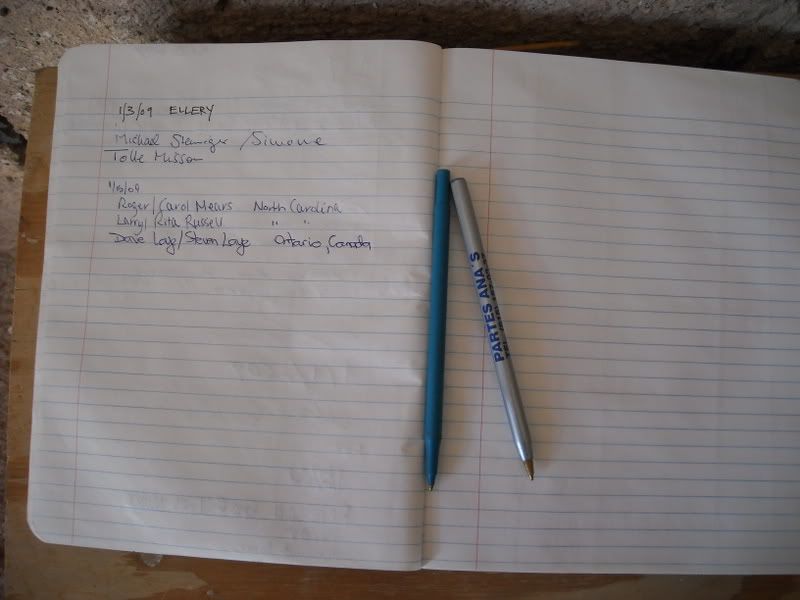 1/3/09 ELLERY
Michael /Simone
Tolle
1/10/09
Roger/Carol Mears North Carolina
Larry/Rita Russell " "
Dave Loye/Steven Loye Ontario, Canada
PARTES ANA'S